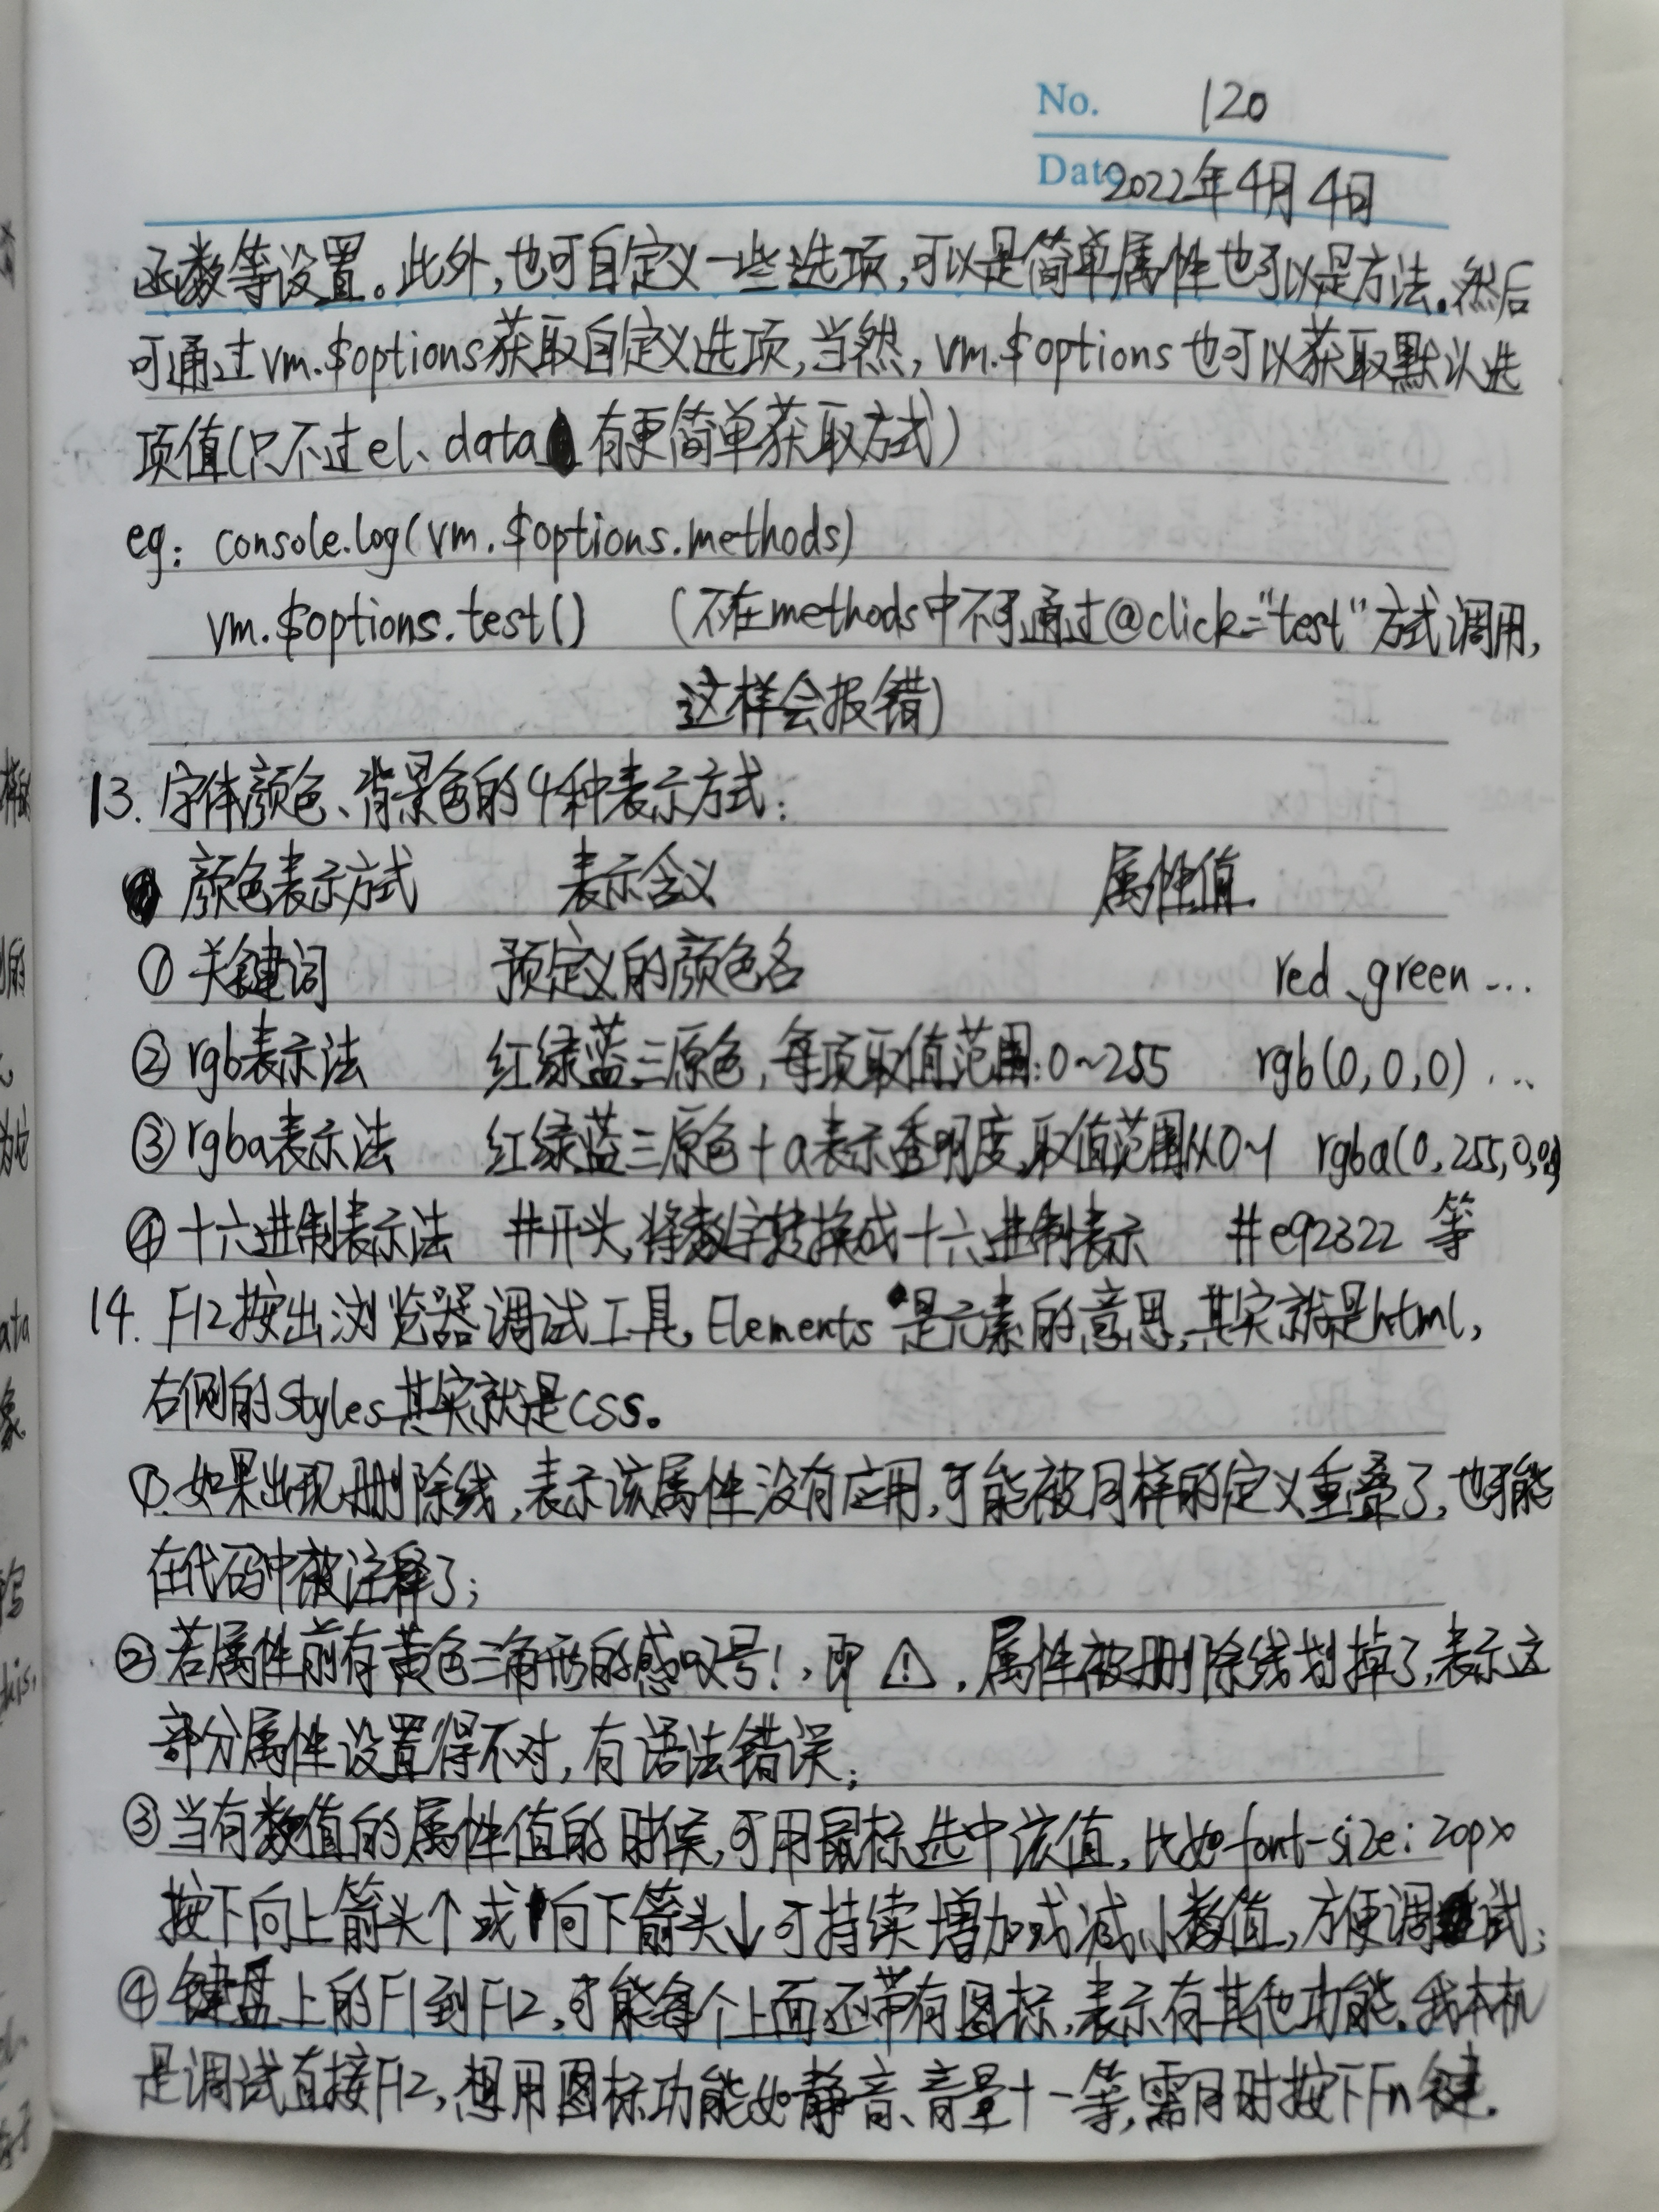 No. 120
Date 2022年4月4日
函数等设置。此外,也可自定义一些选项,可以是简单属性也可以是方法。然后
可通过vm.$options获取自定义选项,当然,vm.$options也可以获取默认选
项值(只不过el、data有更简单获取方式)
eg: console.log(vm.$options.methods)
vm.$options.test() (不在methods中不可通过@click="test"方式调用,
这样会报错)
13. 字体颜色、背景色的4种表示方式:
颜色表示方式 表示含义 属性值
① 关键词 预定义的颜色名 red、green...
② rgb表示法 红绿蓝三原色,每项取值范围:0~255 rgb(0,0,0)...
③ rgba表示法 红绿蓝三原色+a表示透明度,取值范围从0~1 rgba(0,255,0,
④ 十六进制表示法 #开头,将数字转换成十六进制表示 #e92322 等
14. F12按出浏览器调试工具,Elements是元素的意思,其实就是html,
右侧的Styles其实就是css。
①.如果出现删除线,表示该属性没有应用,可能被同样的定义重叠了,也可能
在代码中被注释了;
②若属性前有黄色三角形的感叹号!,即⚠,属性被删除线划掉了,表示这
部分属性设置得不对,有语法错误;
③当有数值的属性值的时候,可用鼠标选中该值,比如font-size:20px
按下向上箭头↑或向下箭头↓可持续增加或减小数值,方便调试;
④键盘上的F1到F12,可能每个上面还带有图标,表示有其他功能。我本机
是调试直接F12,想用图标功能如静音、音量+-等,需同时按下Fn键.